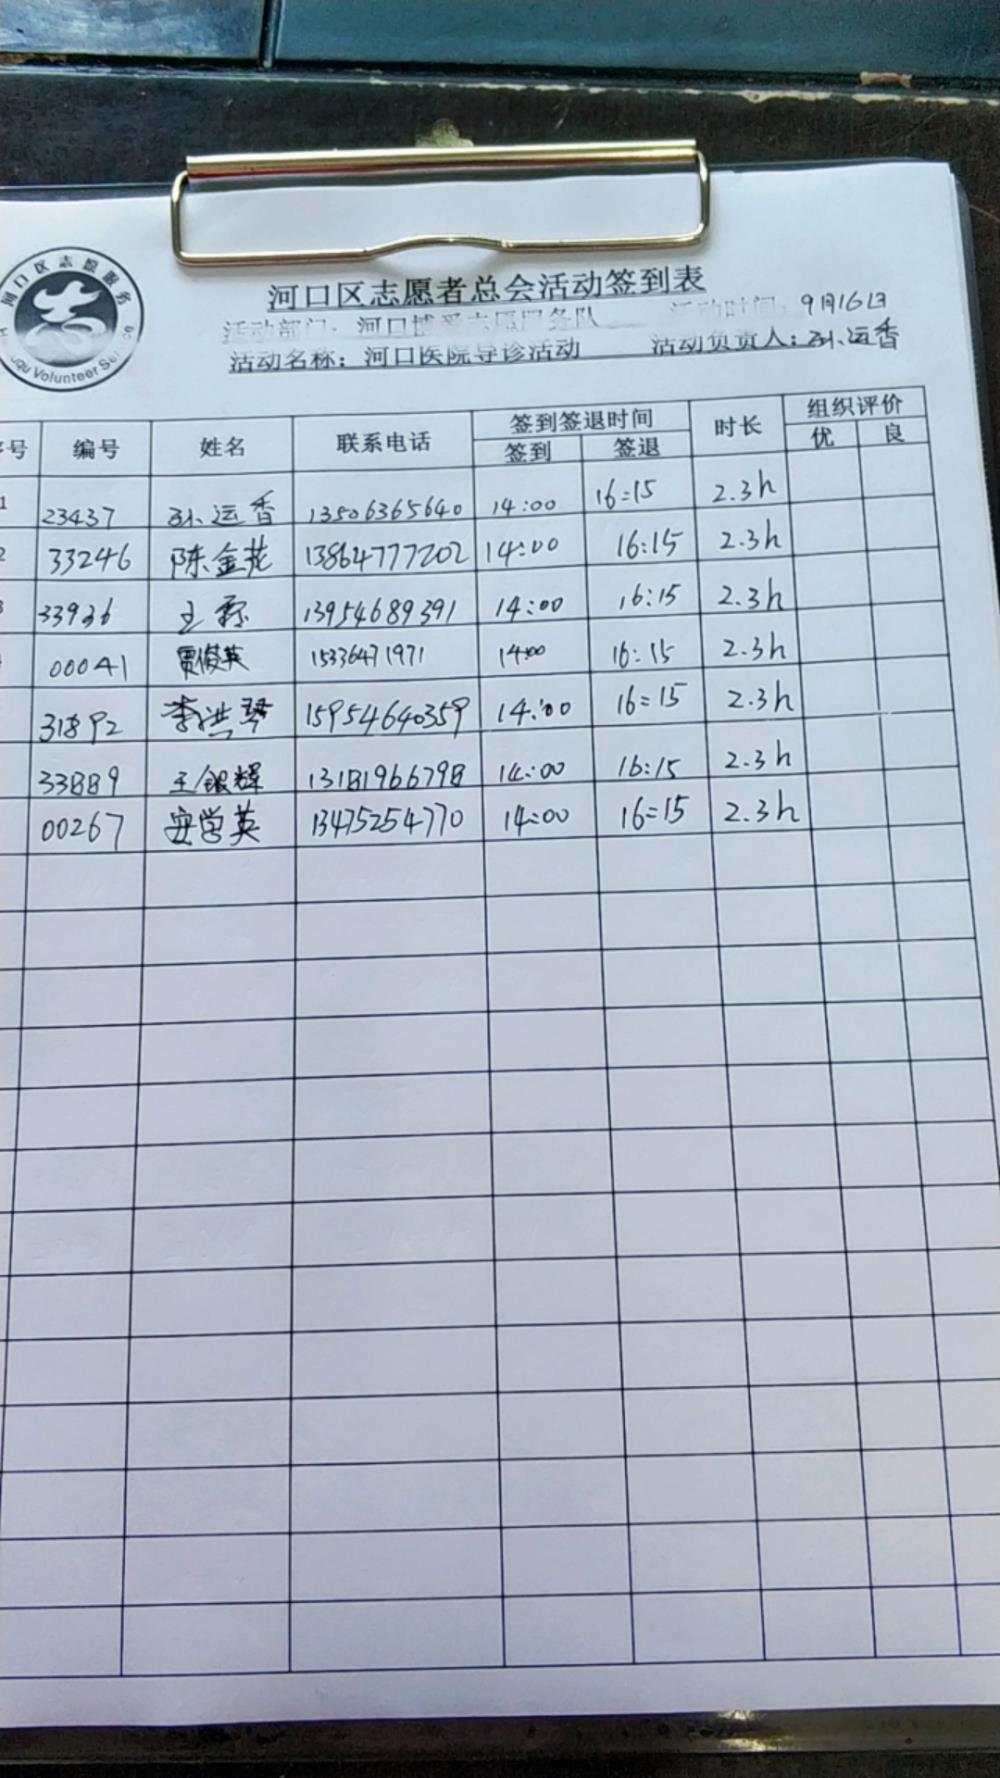 河口区志愿服务
qu Volunteer Service
河口区志愿者总会活动签到表
活动部门：河口博爱志愿服务队 活动时间：9月16日
活动名称：河口医院导诊活动 活动负责人：孙运香
序号 编号 姓名 联系电话 签到签退时间 时长 组织评价
签到 签退 优 良
1 23437 孙运香 13506365640 14:00 16:15 2.3h
2 33246 陈金花 13864777202 14:00 16:15 2.3h
3 33936 王 13954689391 14:00 16:15 2.3h
00041 贾俊英 15336471971 14:00 16:15 2.3h
31892 李洪琴 15954640359 14:00 16:15 2.3h
33889 王银辉 13181966798 14:00 16:15 2.3h
00267 安学英 13475254770 14:00 16:15 2.3h